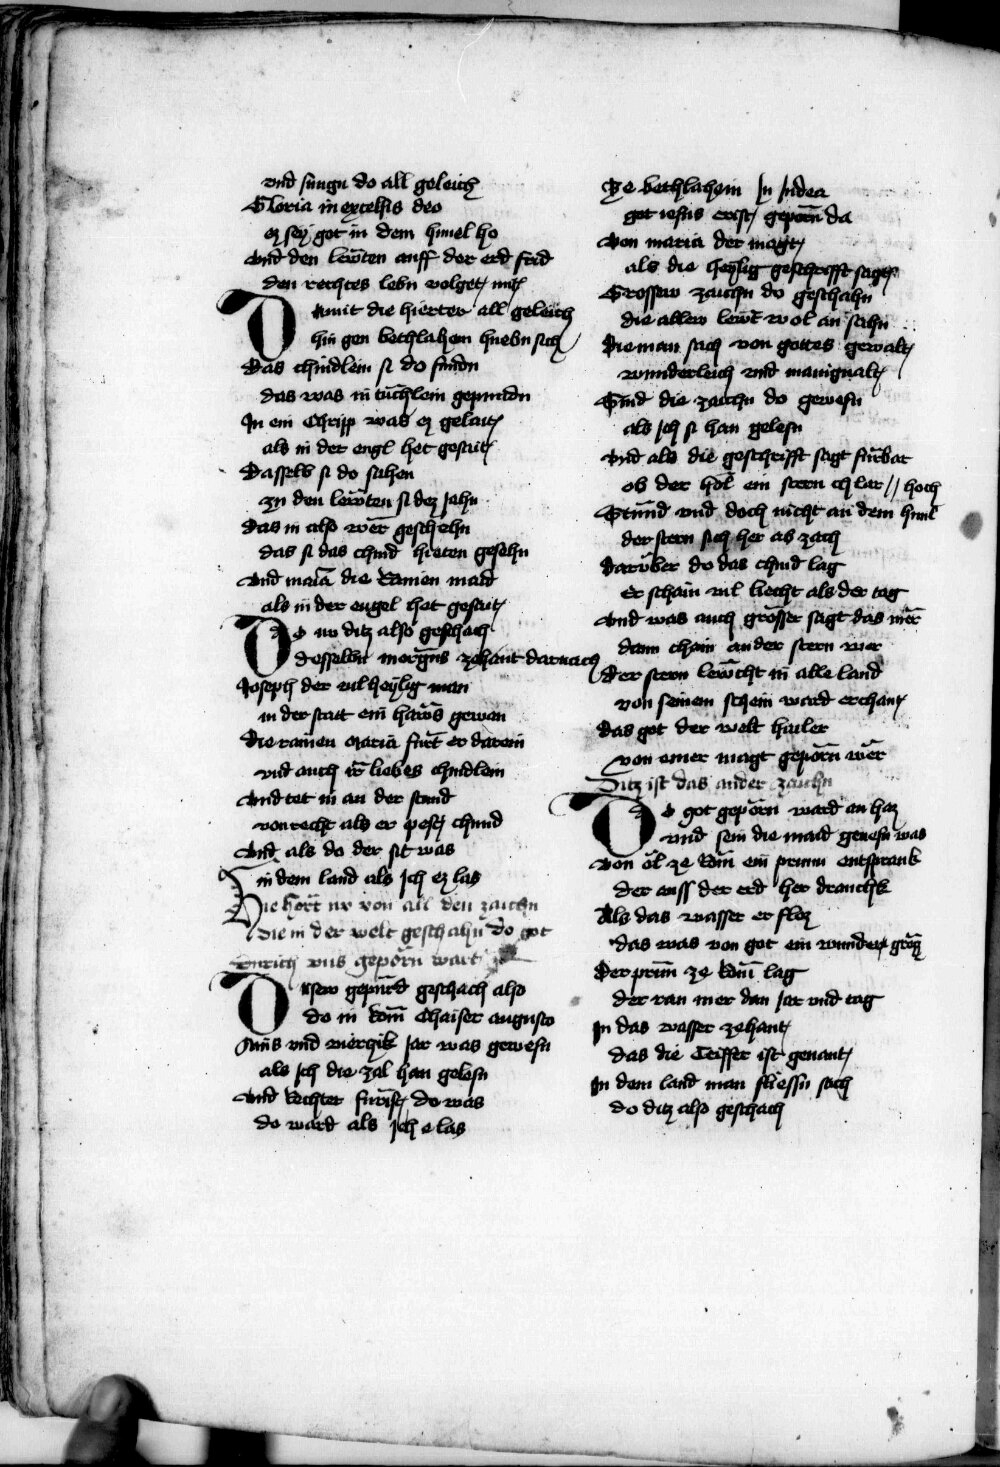 vnd sungn do all geleich
Gloria in excelsis deo
ez sey got in dem himel ho
Vnd den lewten auff der erd frid
den rechtes lebn volget mit
Damit die hierter all geleich
hin gen bethlahem huebn sich
Das chindlein si do fundn
das was in tuchlein gepundn
In ein Chripp was ez gelait
als in der engl het gesait
Dasselb si do sahen
zu den lewten si dez jahn
Das in also wer geschehn
das si das chind hieten gesehn
Vnd maria die rainen maid
als in der engel het gesait
Do nv ditz also geschach
desselbn morgens zehant darnach
Joseph der vil heylig man
in der stat ein haws gewan
Die rainen Maria furt er darein
vnd auch ir liebes chindlein
Vnd tet in an der stund
von recht als er pest chund
Vnd als do der sit was
in dem land als jch ez las
Hie hort nv von all den zaichn
Die in der welt geschahn do got
vns geporn wart
Vnser gepurd geschach also
do in Rom Chaiser augusto
Ains vnd vierczik jar was gewesn
als jch die zal han gelesn
Vnd Rechter furist do was
do ward als jch e las
Ze bethlahem Jn Judea
got iesus crist geporn da
Von maria der magt
als die heylig geschrifft sagt
Grossew zaichn do geschahn
die allew lewt wol an sahn
Die man sach von gottes gewalt
wunderleich vnd manigualt
Sind die zaichn do gewesn
als jch si han gelesn
Vnd als die geschrifft sagt furbar
ob der hol ein stern chlar // hoch
Stund vnd doch nicht an dem himl
der stern sich her ab zach
Daruber do das chind lag
Er schain vil liecht als der tag
Vnd was auch grosser sagt das mer
dann chain ander stern wer
Der stern lewcht in alle land
von seinem schein ward erchant
Das got der welt hailer
von einer magt geporn wer
Ditz ist das ander zaichn
Do got geporn ward an haz
vnd sein die maid genesn was
Von ol ze Rom ein prunn entsprank
der auss der erd her dranchk
Als das wasser er floz
das was von got ein wunder groz
Der prunn ze Rom lag
der ran mer dan jar vnd tag
In das wasser zehant
das die Teiffer ist genant
In dem land man fliessn sach
do ditz also geschach